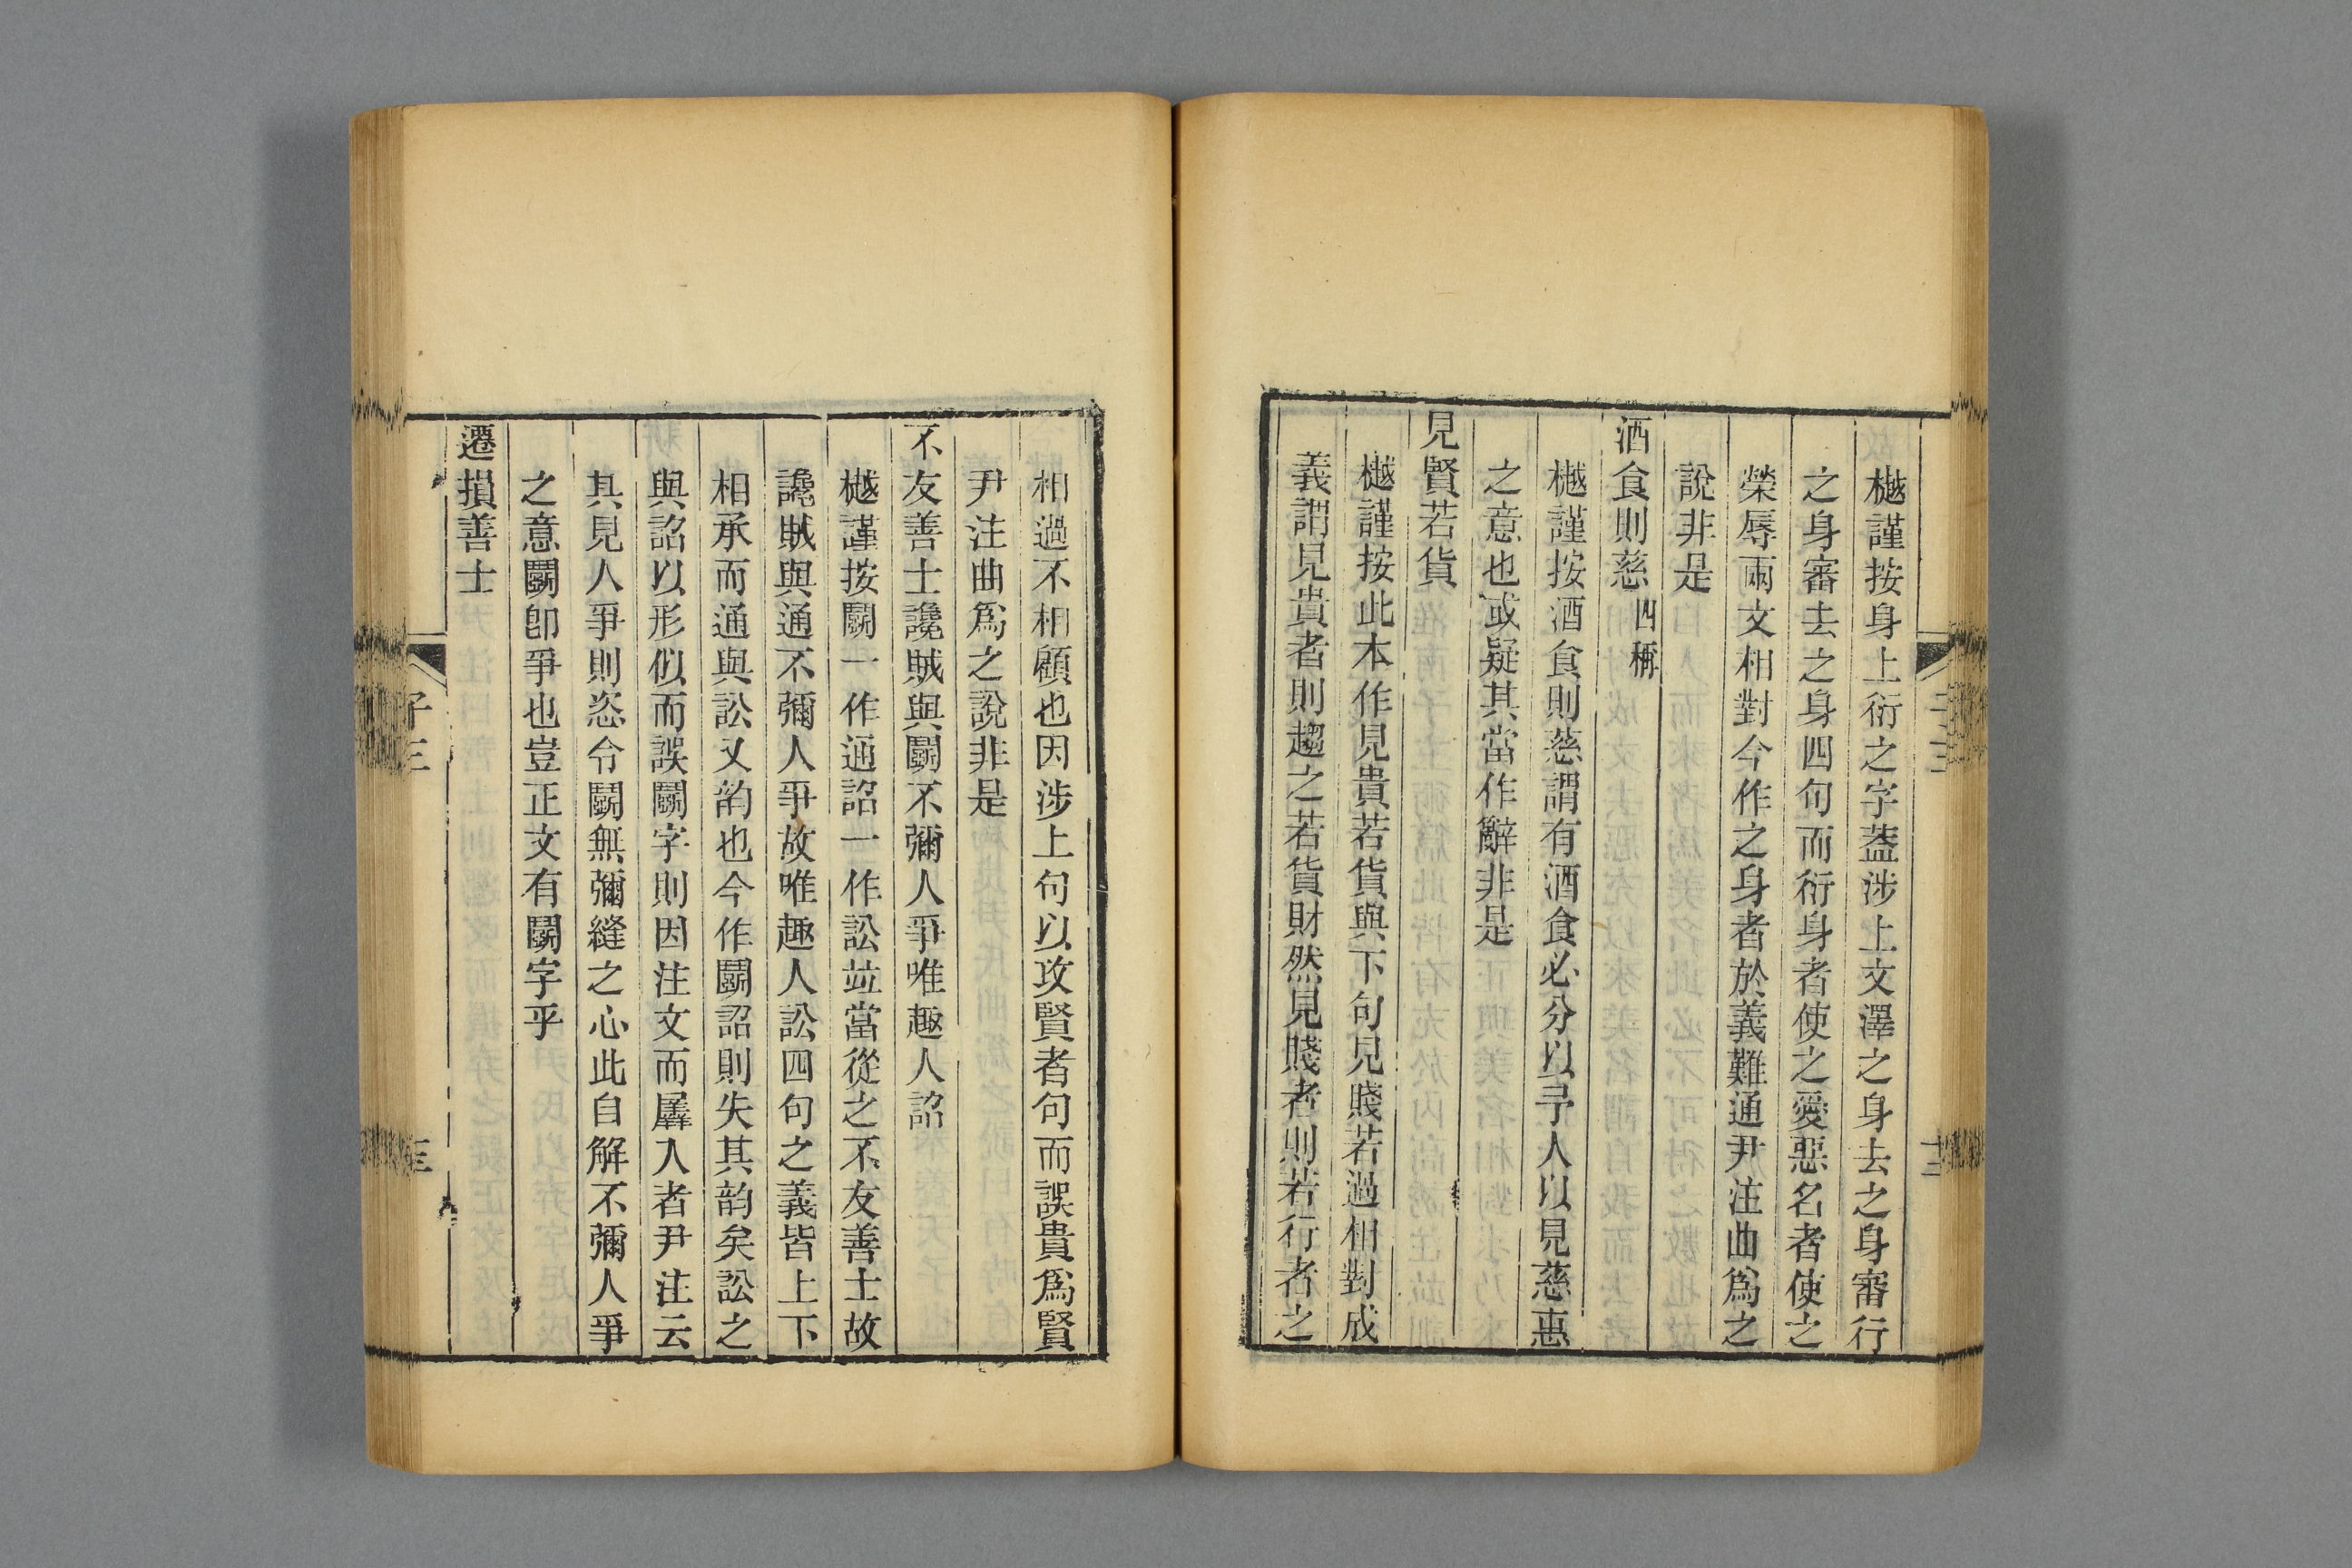 樾謹按身上衍之字葢涉上文澤之身去之身審行
之身審去之身四句而衍身者使之愛惡名者使之
榮辱兩文相對今作之身者於義難通尹注曲爲之
說非是
酒食則慈四稱
樾謹按酒食則慈謂有酒食必分以予人以見慈惠
之意也或疑其當作辭非是
見賢若貨
樾謹按此本作見貴若貨與下句見賤若過相對成
義謂見貴者則趨之若貨財然見賤者則若行者之
相過不相顧也因涉上句以攻賢者句而誤貴爲賢
尹注曲爲之說非是
不友善士讒賊與鬭不彌人爭唯趣人詔
樾謹按鬭一作通詔一作訟竝當從之不友善士故
讒賊與通不彌人爭故唯趣人訟四句之義皆上下
相承而通與訟又韵也今作鬭詔則失其韵矣訟之
與詔以形似而誤鬭字則因注文而羼入者尹注云
其見人爭則恣令鬭無彌縫之心此自解不彌人爭
之意鬭卽爭也豈正文有鬭字乎
遷損善士
子三